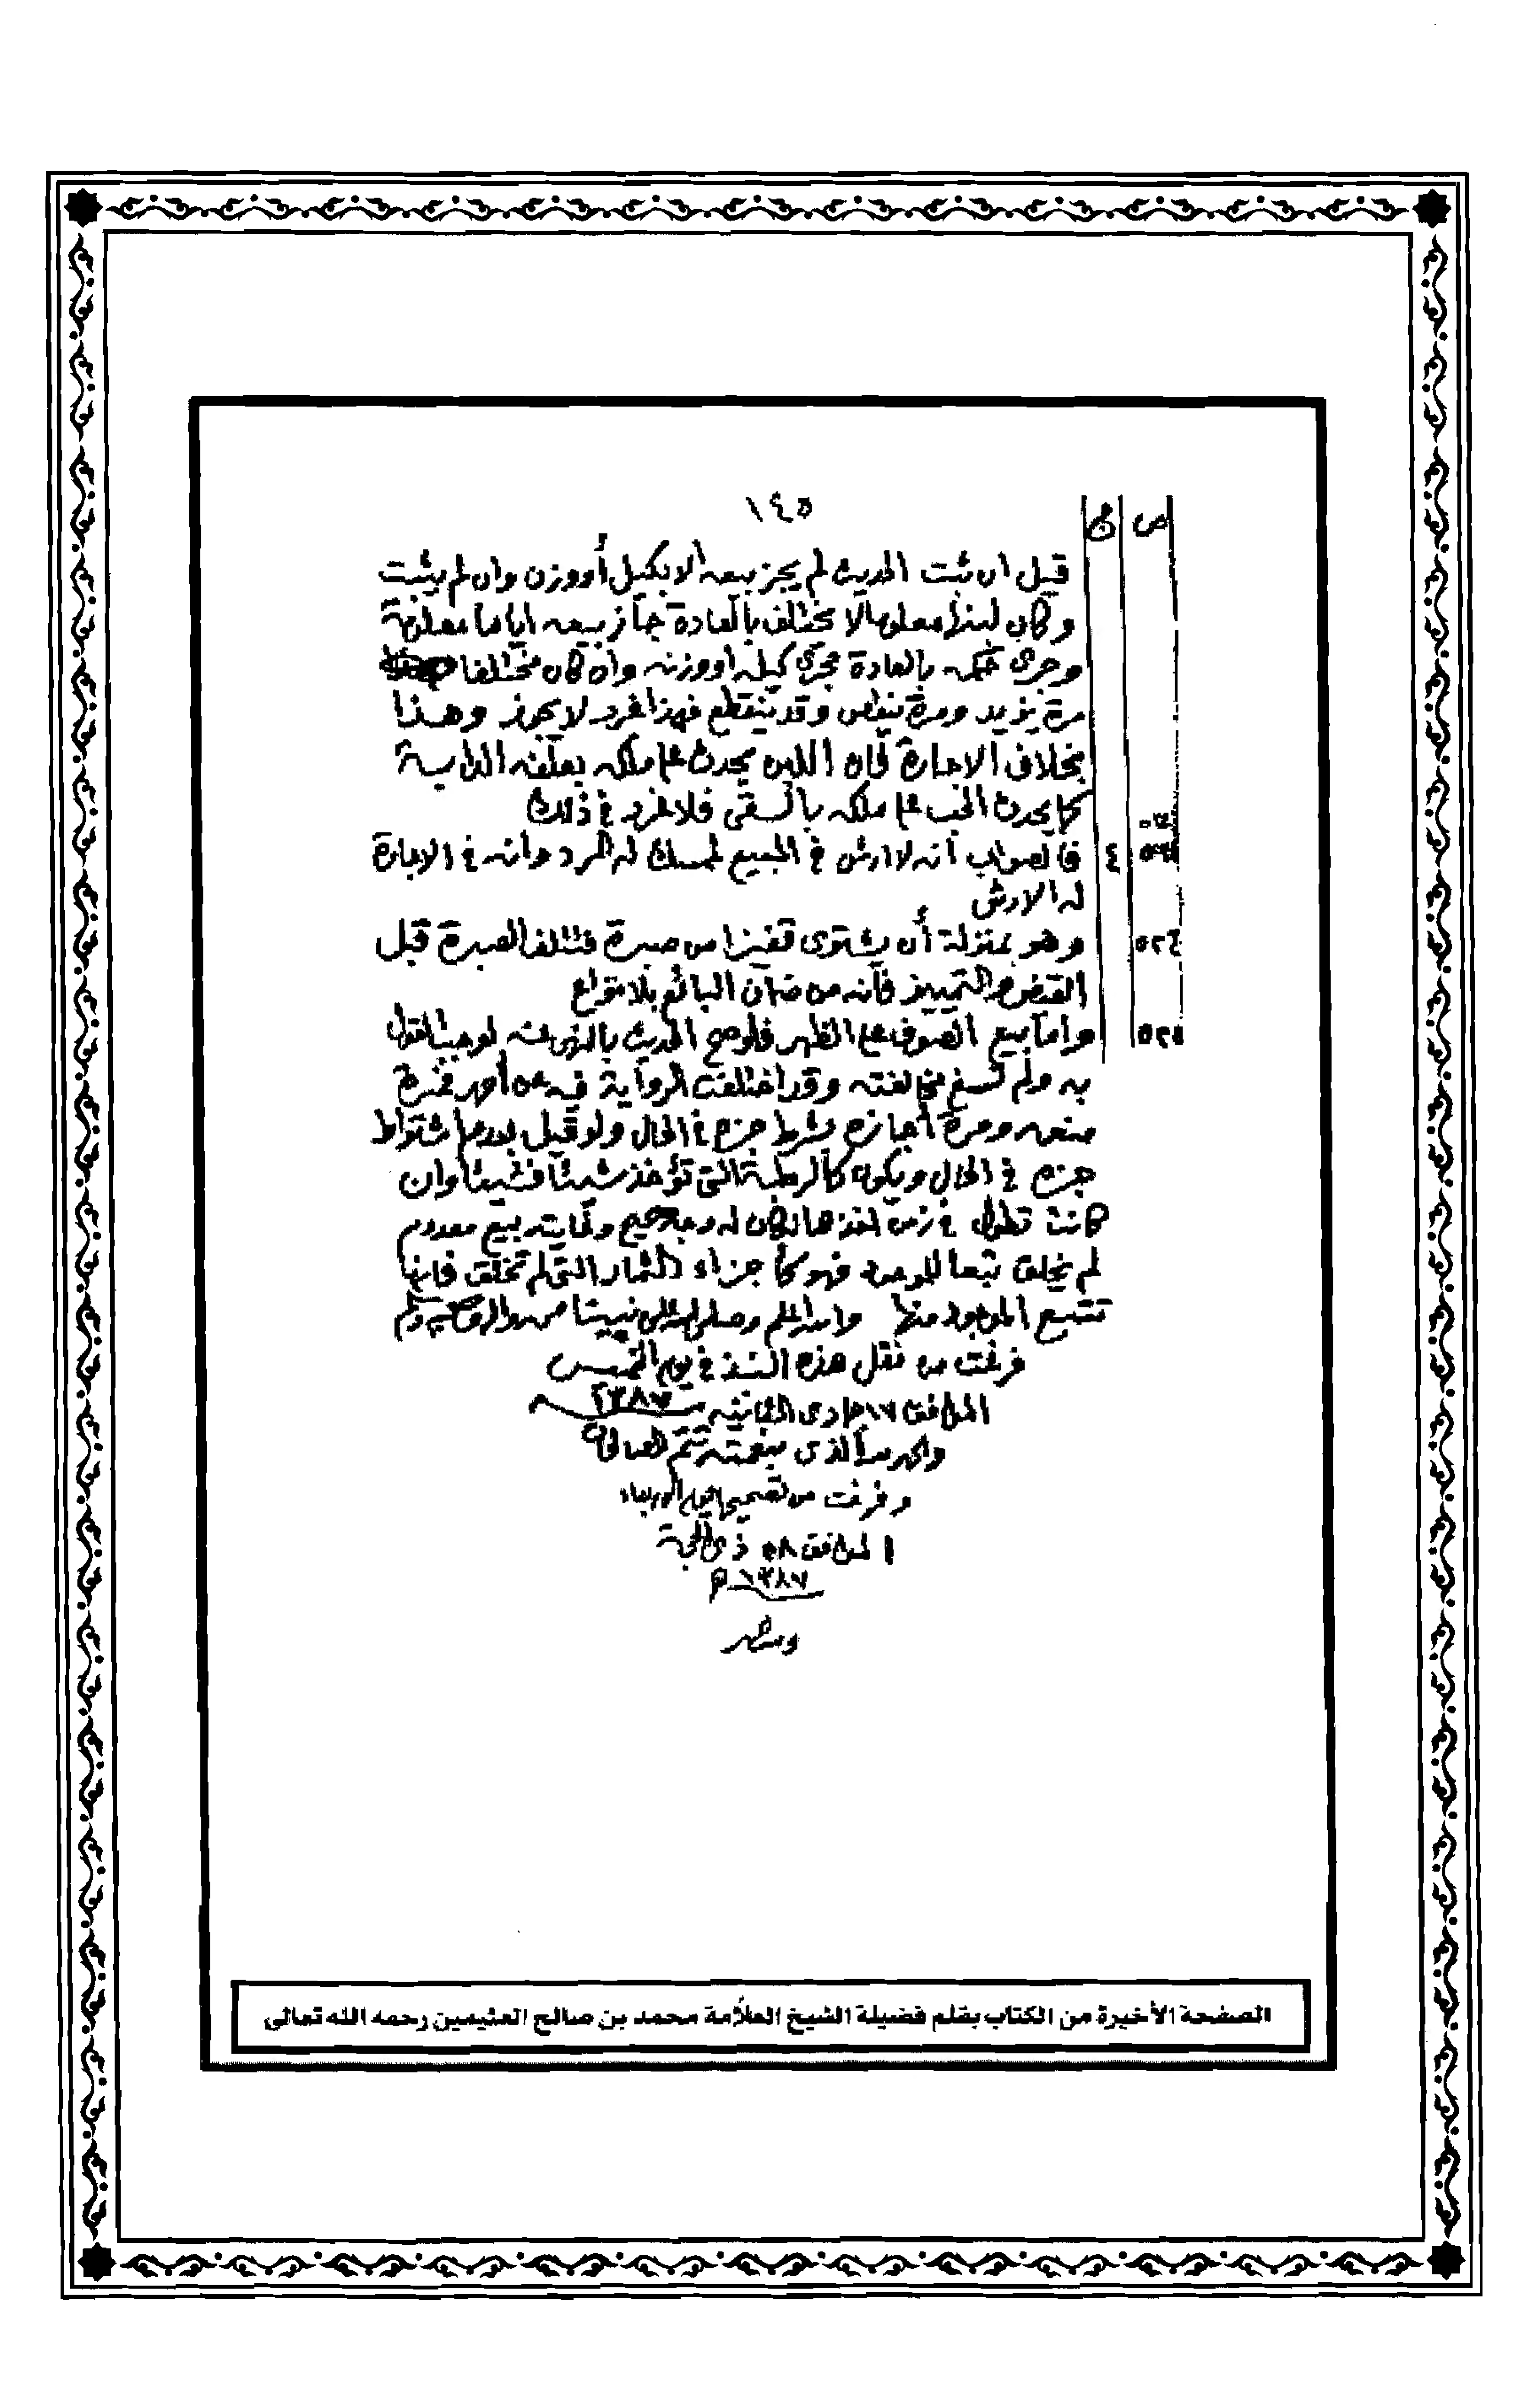 ١٤٥
ص ج
قيل ان ثبت الحديث لم يجز بيعه الا بكيل أو وزن وان لم يثبت
وكان لبنها معلوما لا يختلف بالعادة جاز بيعه اياما معلومة
وجرى حكمه بالعادة مجرى كيله او وزنه وان كان مختلفا
مرة يزيد ومرة ينقص وقد ينقطع فهذا غرر لا يجوز وهذا
بخلاف الاجارة فان اللبن يحدث على ملكه بعلفه الدابة
كما يحدث الحب على ملكه بالسقي فلا غرر في ذلك
٤ فالصواب انه لا ارش في المبيع لمسك له الرد وأنه في الاجارة
له الارش
٥٢٤ وهو بمنزلة أن يشتري قفيزا من صبرة فتتلف الصبرة قبل
القبض والتمييز فانه من ضمان البائع بلا نزاع
٥٢٥ واما بيع الصوف على الظهر فلو صح الحديث بالنهي عنه لوجب القول
به ولم تسغ مخالفته وقد اختلفت الرواية فيه عن أحمد فمرة
منعه ومرة أجازه بشرط جزه في الحال ولو قيل بعدم اشتراط
جزه في الحال ويكون كالرطبة التي تؤخذ شيئا فشيئا وان
كانت تطول في زمن اخذها لكان له وجه صحيح وغايته بيع معدوم
لم يخلق تبعا للموجود فهو كأجزاء الثمار التي لم تخلق فانها
تتبع الموجود منها والله اعلم وصلى الله على نبينا محمد وآله وصحبه وسلم
فرغت من نقل هذه النبذ في يوم الخميس
الموافق ١٧ جمادى الثانية سنة ١٣٨٧ هـ
والحمد لله الذي بنعمته تتم الصالحات
وفرغت من تصحيحها يوم الاربعاء
الموافق ٢٨ ذي الحجة
١٣٨٧ هـ
الصفحة الأخيرة من الكتاب بقلم فضيلة الشيخ العلامة محمد بن صالح العثيمين رحمه الله تعالى